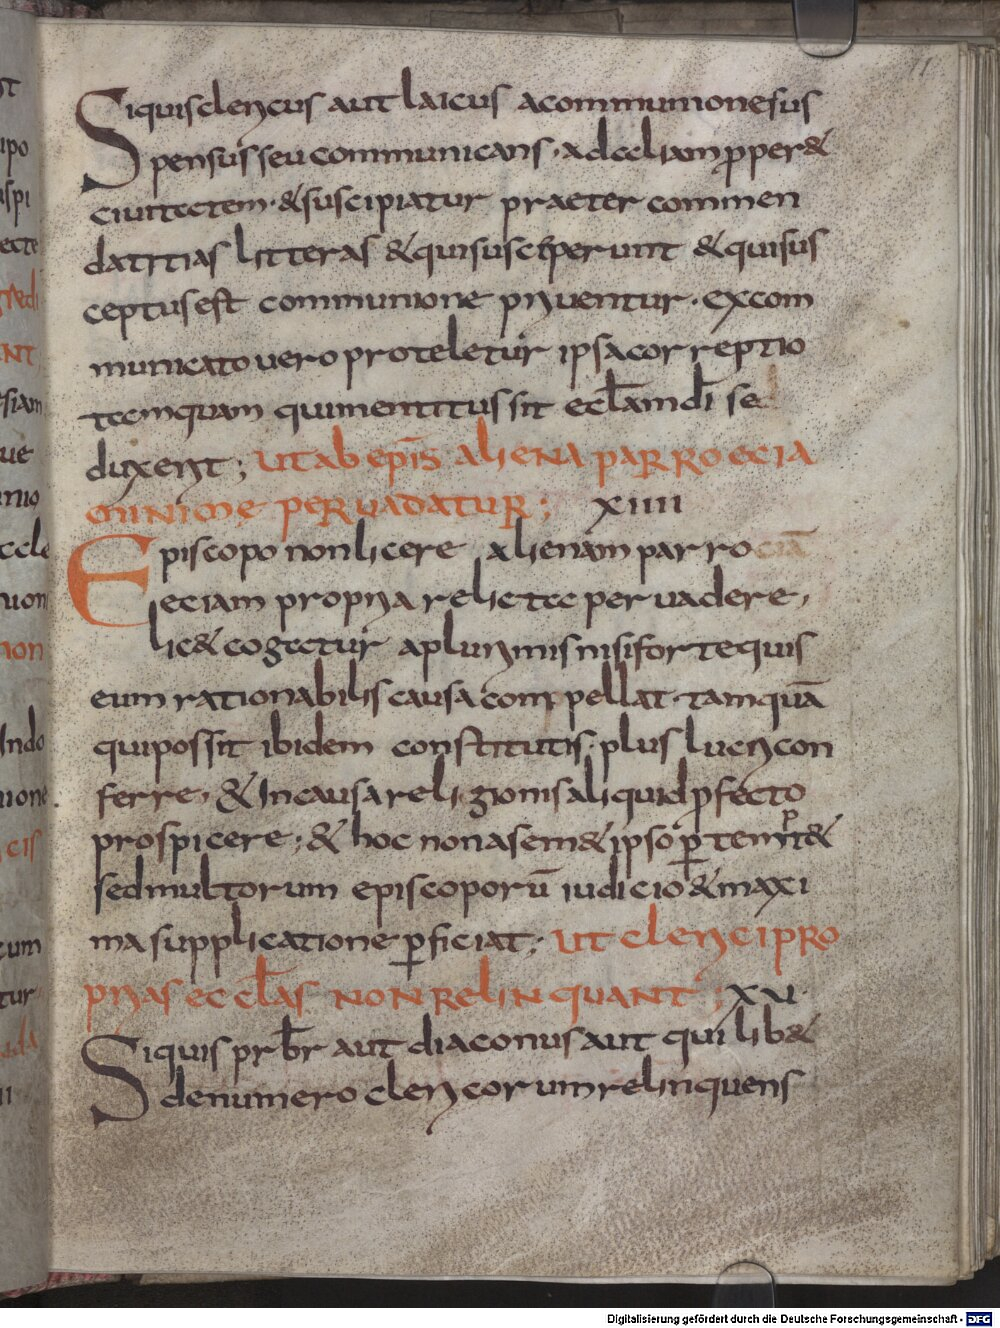 Siquis clericus aut laicus acommunione sus
pensus seu communicans · ad aliam ꝓper&
ciuitatem · & suscipiatur praeter commen
datitias litteras & qui susciperunt & qui sus
ceptus est communione priuentur · excom
municato uero proteletur ipsa correptio
tamquam qui mentitus sit eclam di se
duxerit ; ut ab epis aliena parroecia
minime peruadatur ; XIIII
Episcopo non licere alienam parrociā
eciam propria relicta peruadere ,
lic& cogatur a plurimis nisi forte quis
eum rationabilis causa compellat · tamquā
qui possit ibidem constitutis · plus lucri con
ferre , & In causa religionis aliquid ꝓfecto
prospicere , & hoc non a semet ipso ꝑtempt&
sed multorum episcoporū iudicio & maxi
ma supplicatione ꝑficiat ; ut clerici pro
prias ecclas non relinquant ; XV ·
Siquis prbr aut diaconus aut qui lib&
de numero clericorum relinquens
11
Digitalisierung gefördert durch die Deutsche Forschungsgemeinschaft - DFG